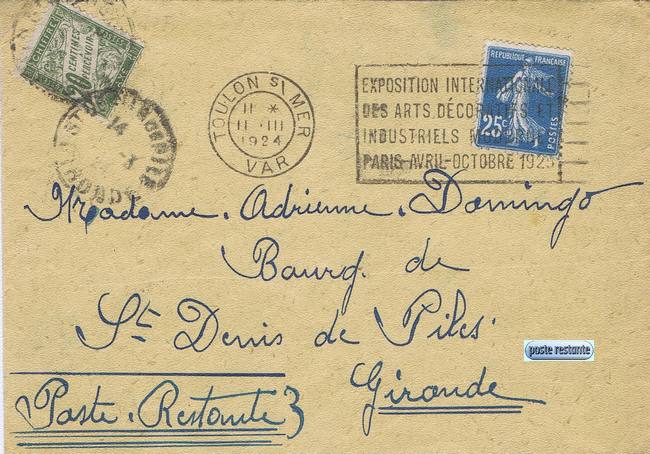 CHIFFRE
20
CENTIMES
A PERCEVOIR
14
GIRONDE
TOULON S/ MER
11 *
11 - III
1924
VAR
EXPOSITION INTERNATIONALE
DES ARTS DÉCORATIFS ET
INDUSTRIELS MODERNES
PARIS-AVRIL-OCTOBRE 1925
REPUBLIQUE FRANÇAISE
25c
POSTES
Madame. Adrienne. Domingo
Bourg. de
St Denis de Piles
poste restante
Gironde
Poste. Restante